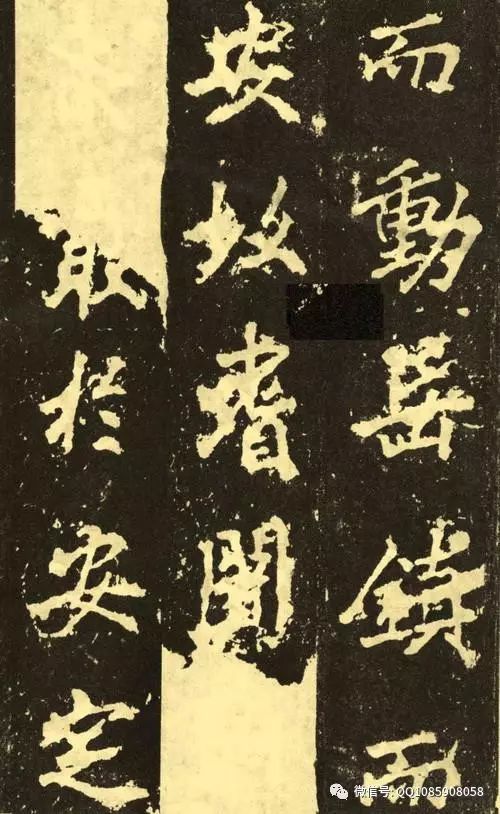 而動岳鎮而
安故耆闍
取於安定
微信号: QQ1085908058